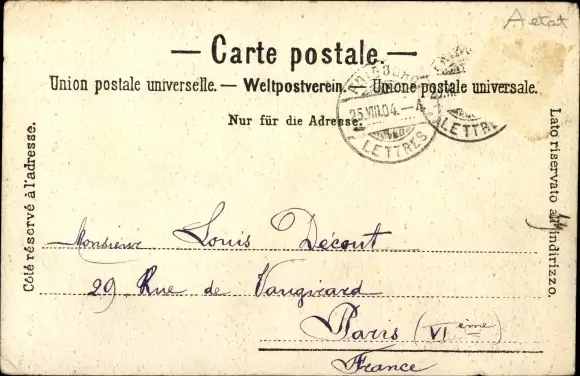 A etat
— Carte postale. —
Union postale universelle. — Weltpostverein. — Unione postale universale.
Nur für die Adresse.
Côté réservé à l'adresse.
Lato riservato all'indirizzo.
25.VIII.04.— 4
LETTRES
LETTRE
Monsieur Louis Décout
29 Rue de Vaugirard
Paris (VIème)
France